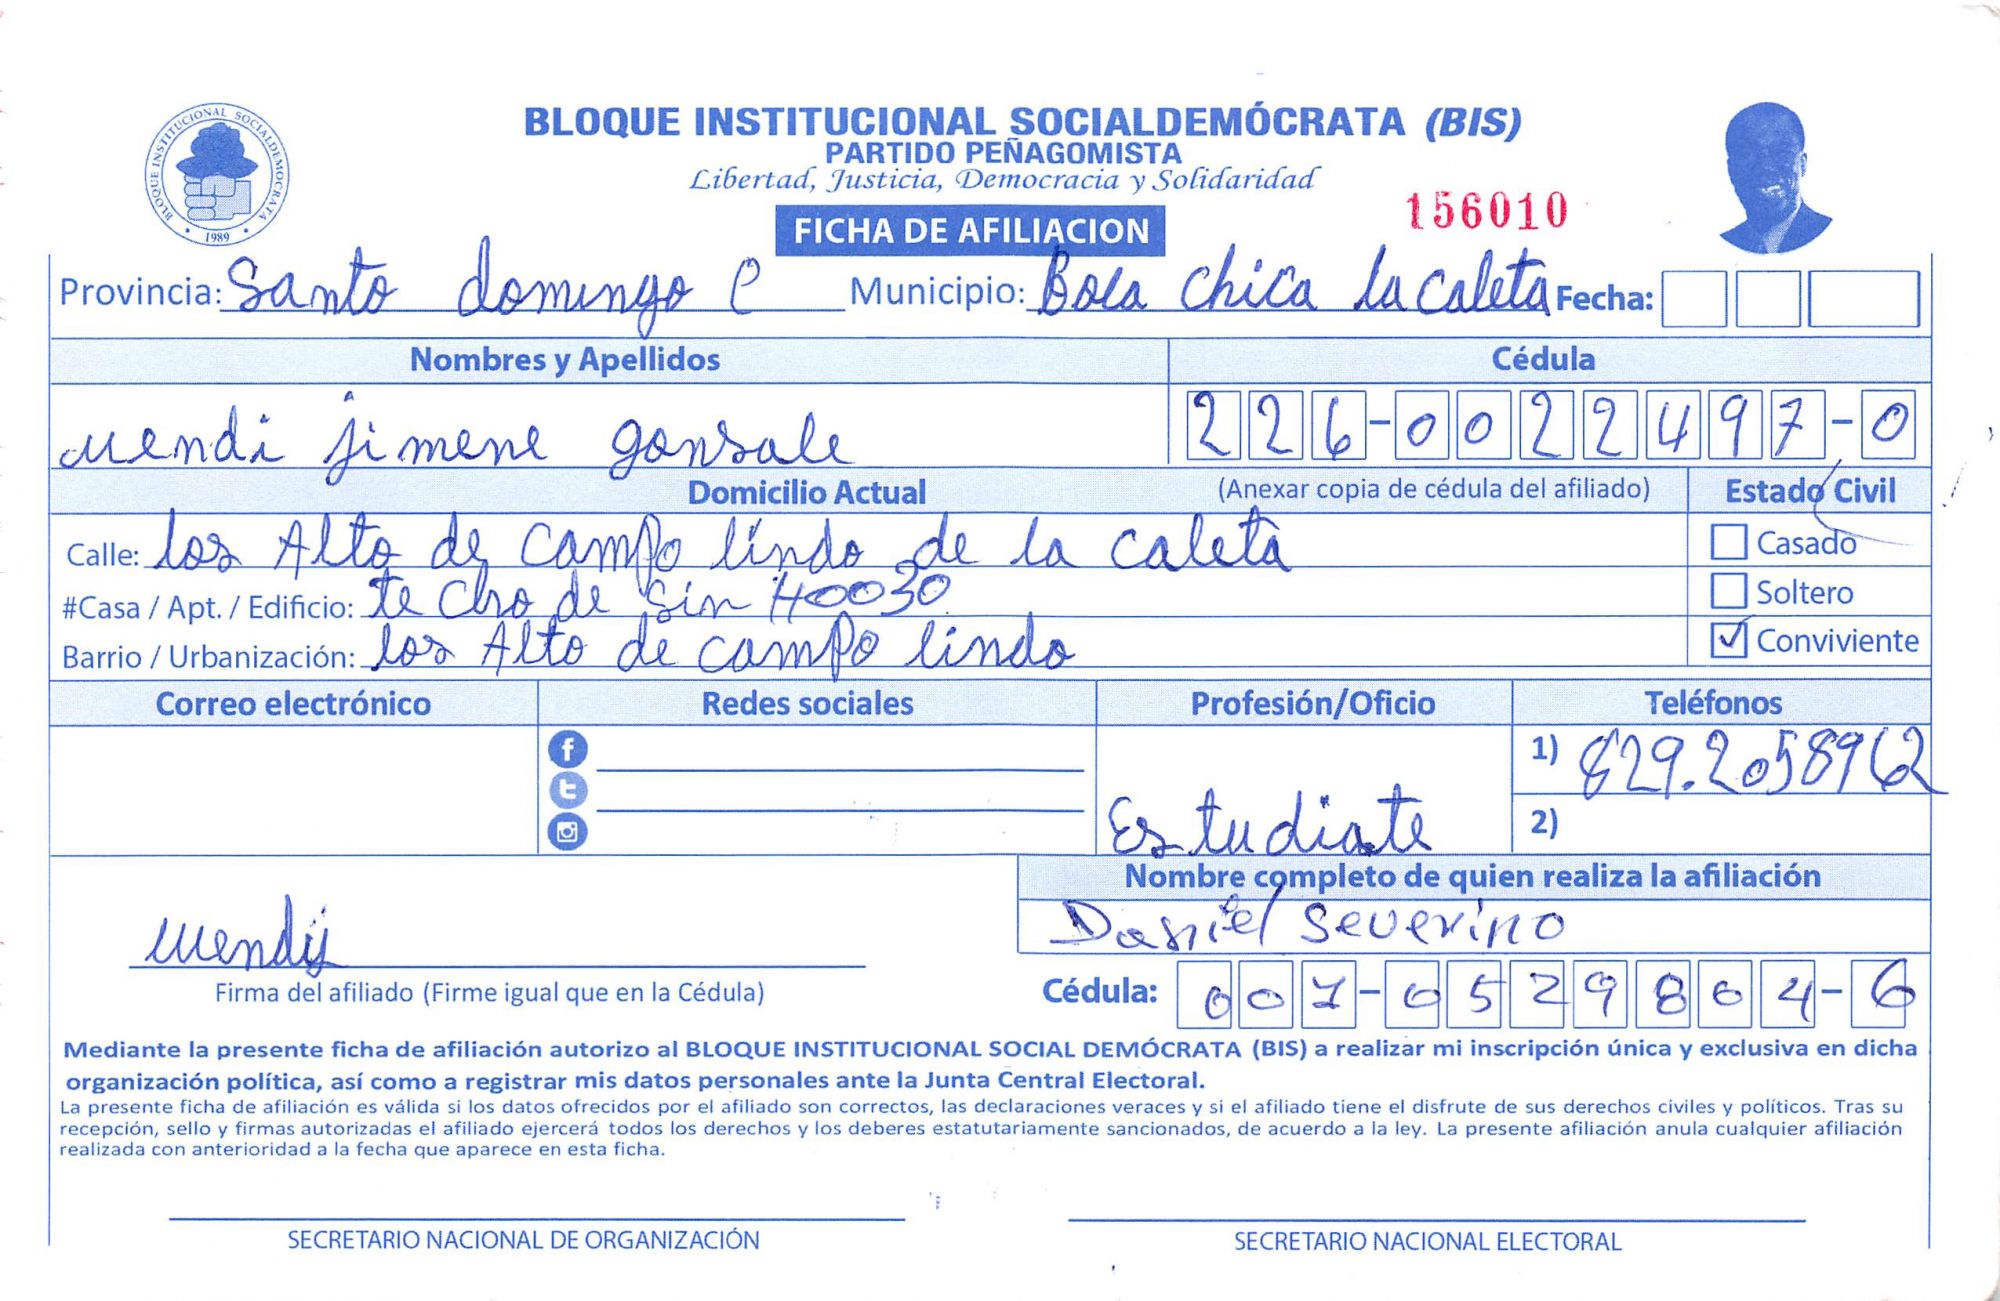 BLOQUE INSTITUCIONAL SOCIALDEMÓCRATA
1989
BLOQUE INSTITUCIONAL SOCIALDEMÓCRATA (BIS)
PARTIDO PEÑAGOMISTA
Libertad, Justicia, Democracia y Solidaridad
156010
FICHA DE AFILIACION
Provincia: Santo domingo e Municipio: Boca chica la caleta Fecha:
Nombres y Apellidos Cédula
wendi jimene gonsale 226-0022497-0
Domicilio Actual (Anexar copia de cédula del afiliado) Estado Civil
Calle: los Alto de campo lindo de la caleta Casado
#Casa / Apt. / Edificio: te cho de sin Soltero
Barrio / Urbanización: los Alto de campo lindo Conviviente
Correo electrónico Redes sociales Profesión/Oficio Teléfonos
1) 829.2058962
Estudiate 2)
Nombre completo de quien realiza la afiliación
Daniel Severino
wendy
Firma del afiliado (Firme igual que en la Cédula) Cédula: 001-0529804-6
Mediante la presente ficha de afiliación autorizo al BLOQUE INSTITUCIONAL SOCIAL DEMÓCRATA (BIS) a realizar mi inscripción única y exclusiva en dicha
organización política, así como a registrar mis datos personales ante la Junta Central Electoral.
La presente ficha de afiliación es válida si los datos ofrecidos por el afiliado son correctos, las declaraciones veraces y si el afiliado tiene el disfrute de sus derechos civiles y políticos. Tras su
recepción, sello y firmas autorizadas el afiliado ejercerá todos los derechos y los deberes estatutariamente sancionados, de acuerdo a la ley. La presente afiliación anula cualquier afiliación
realizada con anterioridad a la fecha que aparece en esta ficha.
SECRETARIO NACIONAL DE ORGANIZACIÓN SECRETARIO NACIONAL ELECTORAL